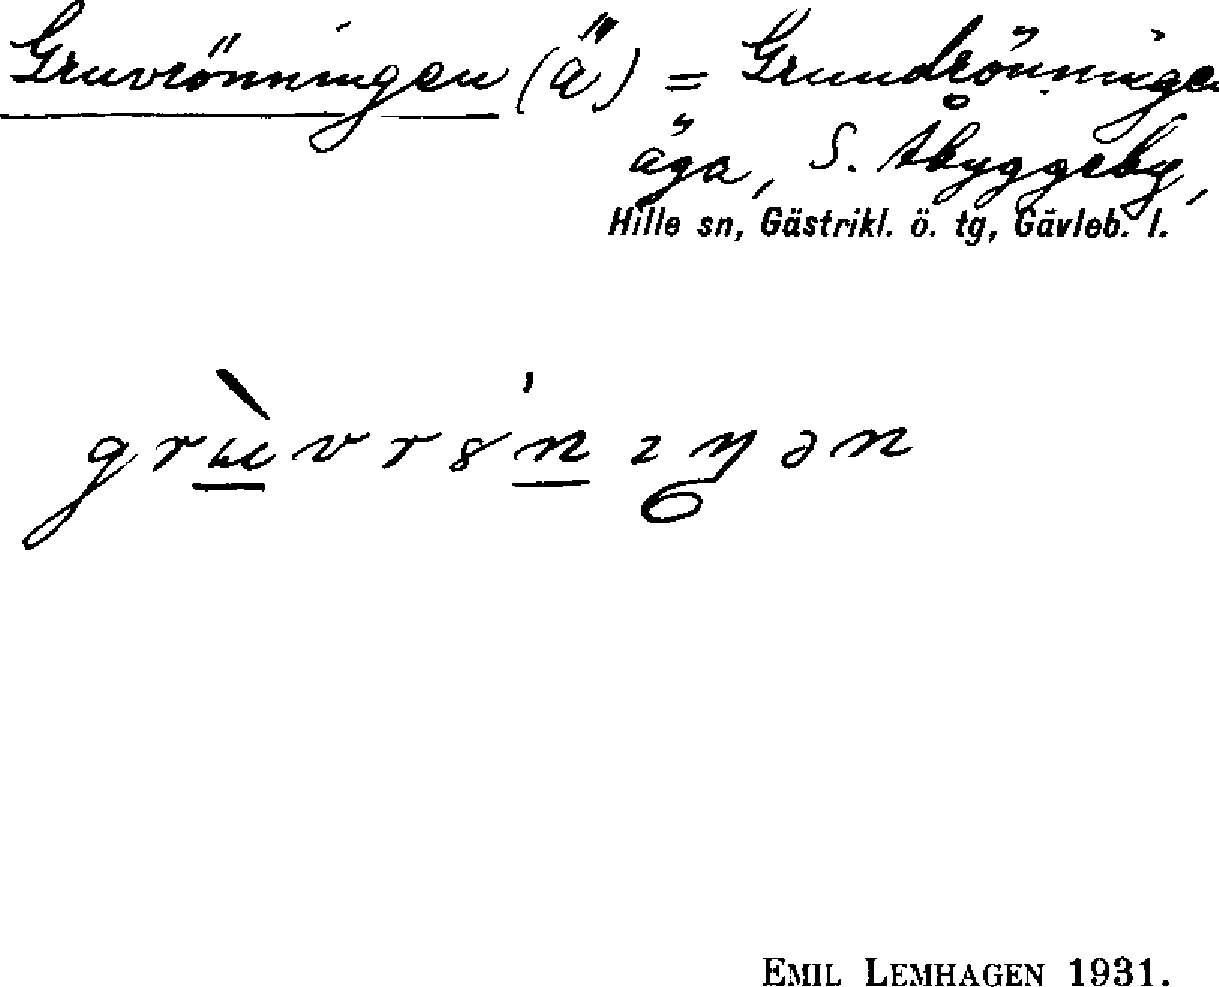 Gruvrönningen (ä) = Grundrönningen
äga, S. Åbyggeby,
Hille sn, Gästrikl. ö. tg, Gävleb. l.
grùvrȣ́nıŋən
EMIL LEMHAGEN 1931.